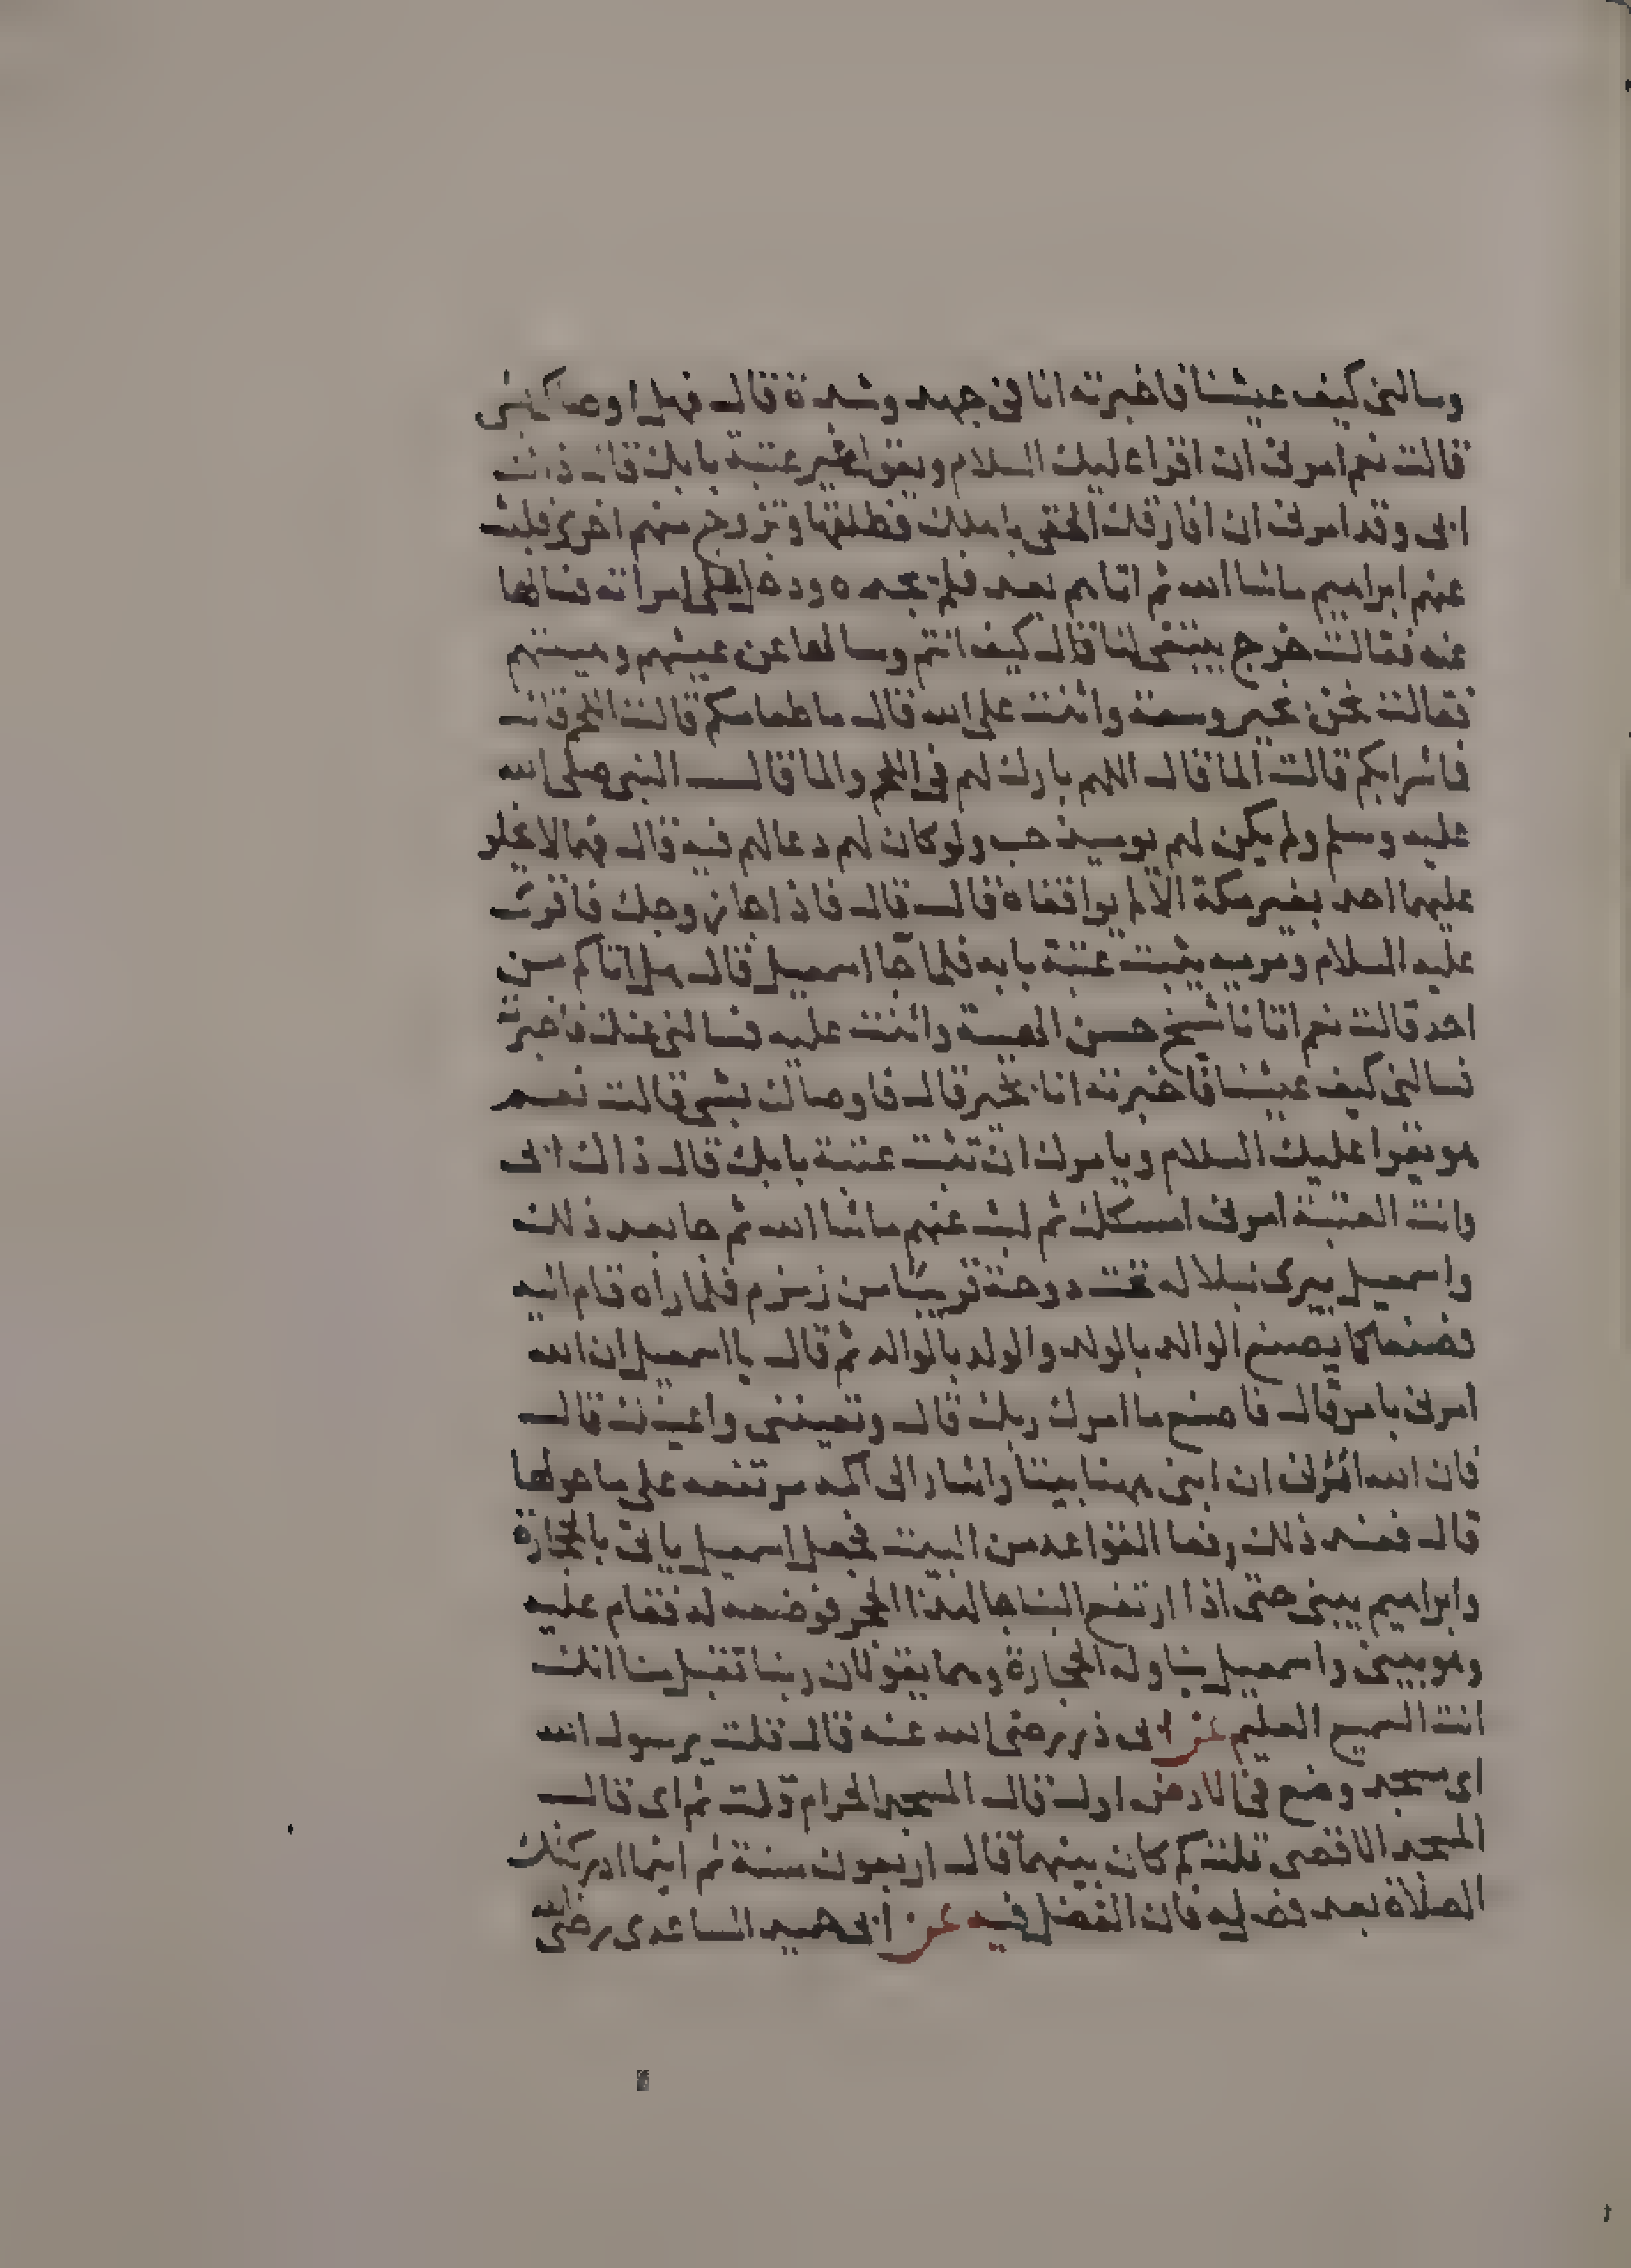 وسالني كيف عيشنا فاخبرته انا في جهد وشدة قال فهل اوصاك بشي
قالت نعم امرني ان اقرا عليك السلام ويقول غير عتبة بابك قال ذاك
ابي وقد امرني ان افارقك الحقي باهلك فطلقها وتزوج منهم اخرى فلبث
عنهم ابراهيم ماشا الله ثم اتاهم بعد فلم يجده ودخل على امراته فسالها
عنه فقالت خرج يبتغي لنا قال كيف انتم وسالها عن عيشهم وهيئتهم
فقالت نحن بخير وسعة واثنت على الله قال ما طعامكم قالت اللحم قال
فاشرابكم قالت الما قال اللهم بارك لهم في اللحم والما قال النبي صلى الله
عليه وسلم ولم يكن لهم يوميذ حب ولو كان لهم دعا لهم فيه قال فهما لا يخلو
عليهما احد بغير مكة الا لم يوافقاه قال قال فاذا جا زوجك فاقرئ
عليه السلام ومريه يثبت عتبة بابه فلما جا اسمعيل قال هل اتاكم من
احد قالت نعم اتانا شيخ حسن الهيئة واثنت عليه فسالني عنك فاخبرته
فسالني كيف عيشنا فاخبرته انا بخير قال فاوصاك بشي قالت نعم
هو يقرا عليك السلام ويامرك ان تثبت عتبة بابك قال ذاك ابي
وانت العتبة امرني امسكك ثم لبث عنهم ماشا الله ثم جا بعد ذلك
واسمعيل يبري نبلا له تحت دوحة قريبا من زمزم فلما راه قام اليه
فصنعا كما يصنع الوالد بالولد والولد بالوالد ثم قال يا اسمعيل ان الله
امرني بامر قال فاصنع ما امرك ربك قال وتعينني واعينك قال
فان الله امرني ان ابني ههنا بيتا واشار الى اكمه مرتفعه على ما حولها
قال فعند ذلك رفعا القواعد من البيت فجعل اسمعيل ياتي بالحجارة
وابراهيم يبني حتى اذا ارتفع البنا جا بهذا الحجر فوضعه له فقام عليه
وهو يبني واسمعيل يناوله الحجارة وهما يقولان ربنا تقبل منا انك
انت السميع العليم عن ابي ذر رضي الله عنه قال قلت يرسول الله
اي مسجد وضع في الارض اول قال المسجد الحرام قلت ثم اي قال
المسجد الاقصى قلت كم كان بينهما قال اربعون سنة ثم اينما ادركتك
الصلاة بعد فصله فان الفضل فيه عن ابي حميد الساعدي رضي الله